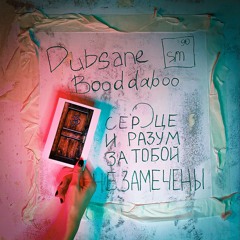 Dubsane
90
sm
Bogddaboo
СЕРДЦЕ
И РАЗУМ
ЗА ТОБОЙ
НЕЗАМЕЧЕНЫ